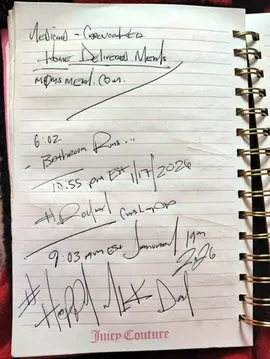 Medicaid - Coordinated
Home Delivered Meals
momsmeal.com.
6:02
- Bathroom Runs...
10:55 pm EST 1/17/2026
#
9:03 AM EST January 19th
2026
#Happy MLK Day!
Juicy Couture